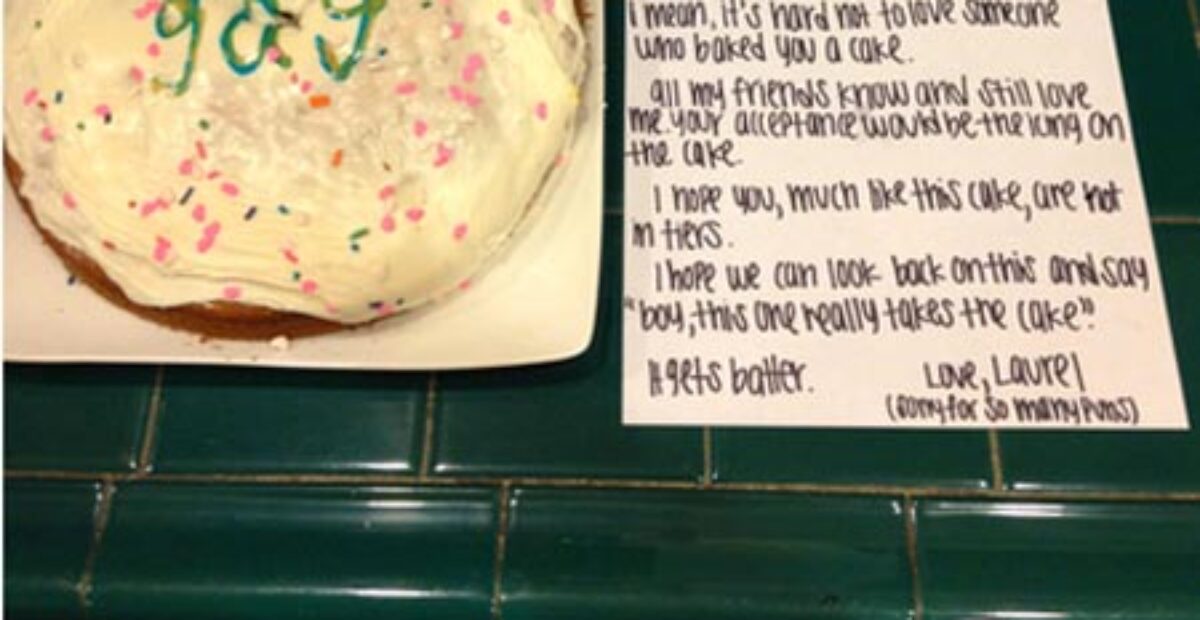 gay
I mean, it's hard not to love someone
who baked you a cake.
all my friends know and still love
me. your acceptance would be the icing on
the cake.
I hope you, much like this cake, are not
in tiers.
I hope we can look back on this and say
"boy, this one really takes the cake".
It gets batter.
Love, Laurel
(sorry for so many puns)